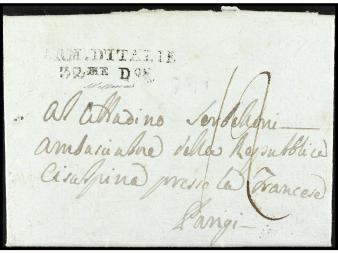 ARM. D'ITALIE
32ME Don
Al Cittadino Serbelloni
Ambasciatore della Repubblica
Cisalpina presso la Francese
Parigi